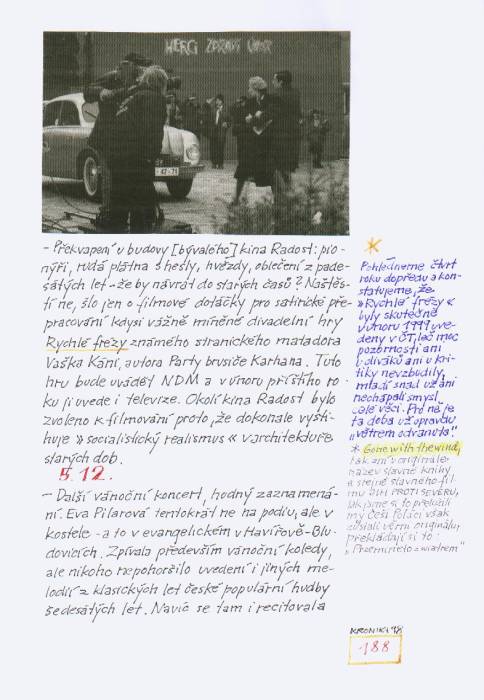 – Překvapení u budovy [bývalého] kina Radost: pio-
nýři, rudá plátna s hesly, hvězdy, oblečení z pade-
sátých let – že by návrat do starých časů? Naštěs-
tí ne, šlo jen o filmové dotáčky pro satirické pře-
pracování kdysi vážně míněné divadelní hry
Rychlé frézy známého stranického matadora
Vaška Káni, autora Party brusiče Karhana. Tuto
hru bude uvádět NDM a v únoru příštího ro-
ku ji uvede i televize. Okolí kina Radost bylo
zvoleno k filmování proto, že dokonale vysti-
huje »socialistický realismus« v architektuře
starých dob.
5.12.
– Další vánoční koncert, hodný zaznamená-
ní. Eva Pilarová tentokrát ne na podiu, ale v
kostele – a to v evangelickém v Havířově-Blu-
dovicích. Zpívala především vánoční koledy,
ale nikoho nepohoršilo uvedení i jiných me-
lodií z klasických let české populární hudby
šedesátých let. Navíc se tam i recitovala
*
Pohlédneme čtvrt
roku dopředu a kon-
statujeme, že
»Rychlé frézy«
byly skutečně
v únoru 1999 uve-
deny v ČT, leč moc
pozornosti ani
u diváků ani u kri-
tiky nevzbudily,
mladí snad už ani
nechápali smysl
celé věci. Pro ně je
ta doba už opravdu
„větrem odvanuta“.
* Gone with the wind,
tak zní v originále
název slavné knihy
a stejně slavného fil-
mu JIH PROTI SEVERU,
jak jsme si to přeložili
my Češi. Poláci však
zůstali věrni originálu,
překládají si to
„Przeminęło z wiatrem“
KRONIKA 98
188